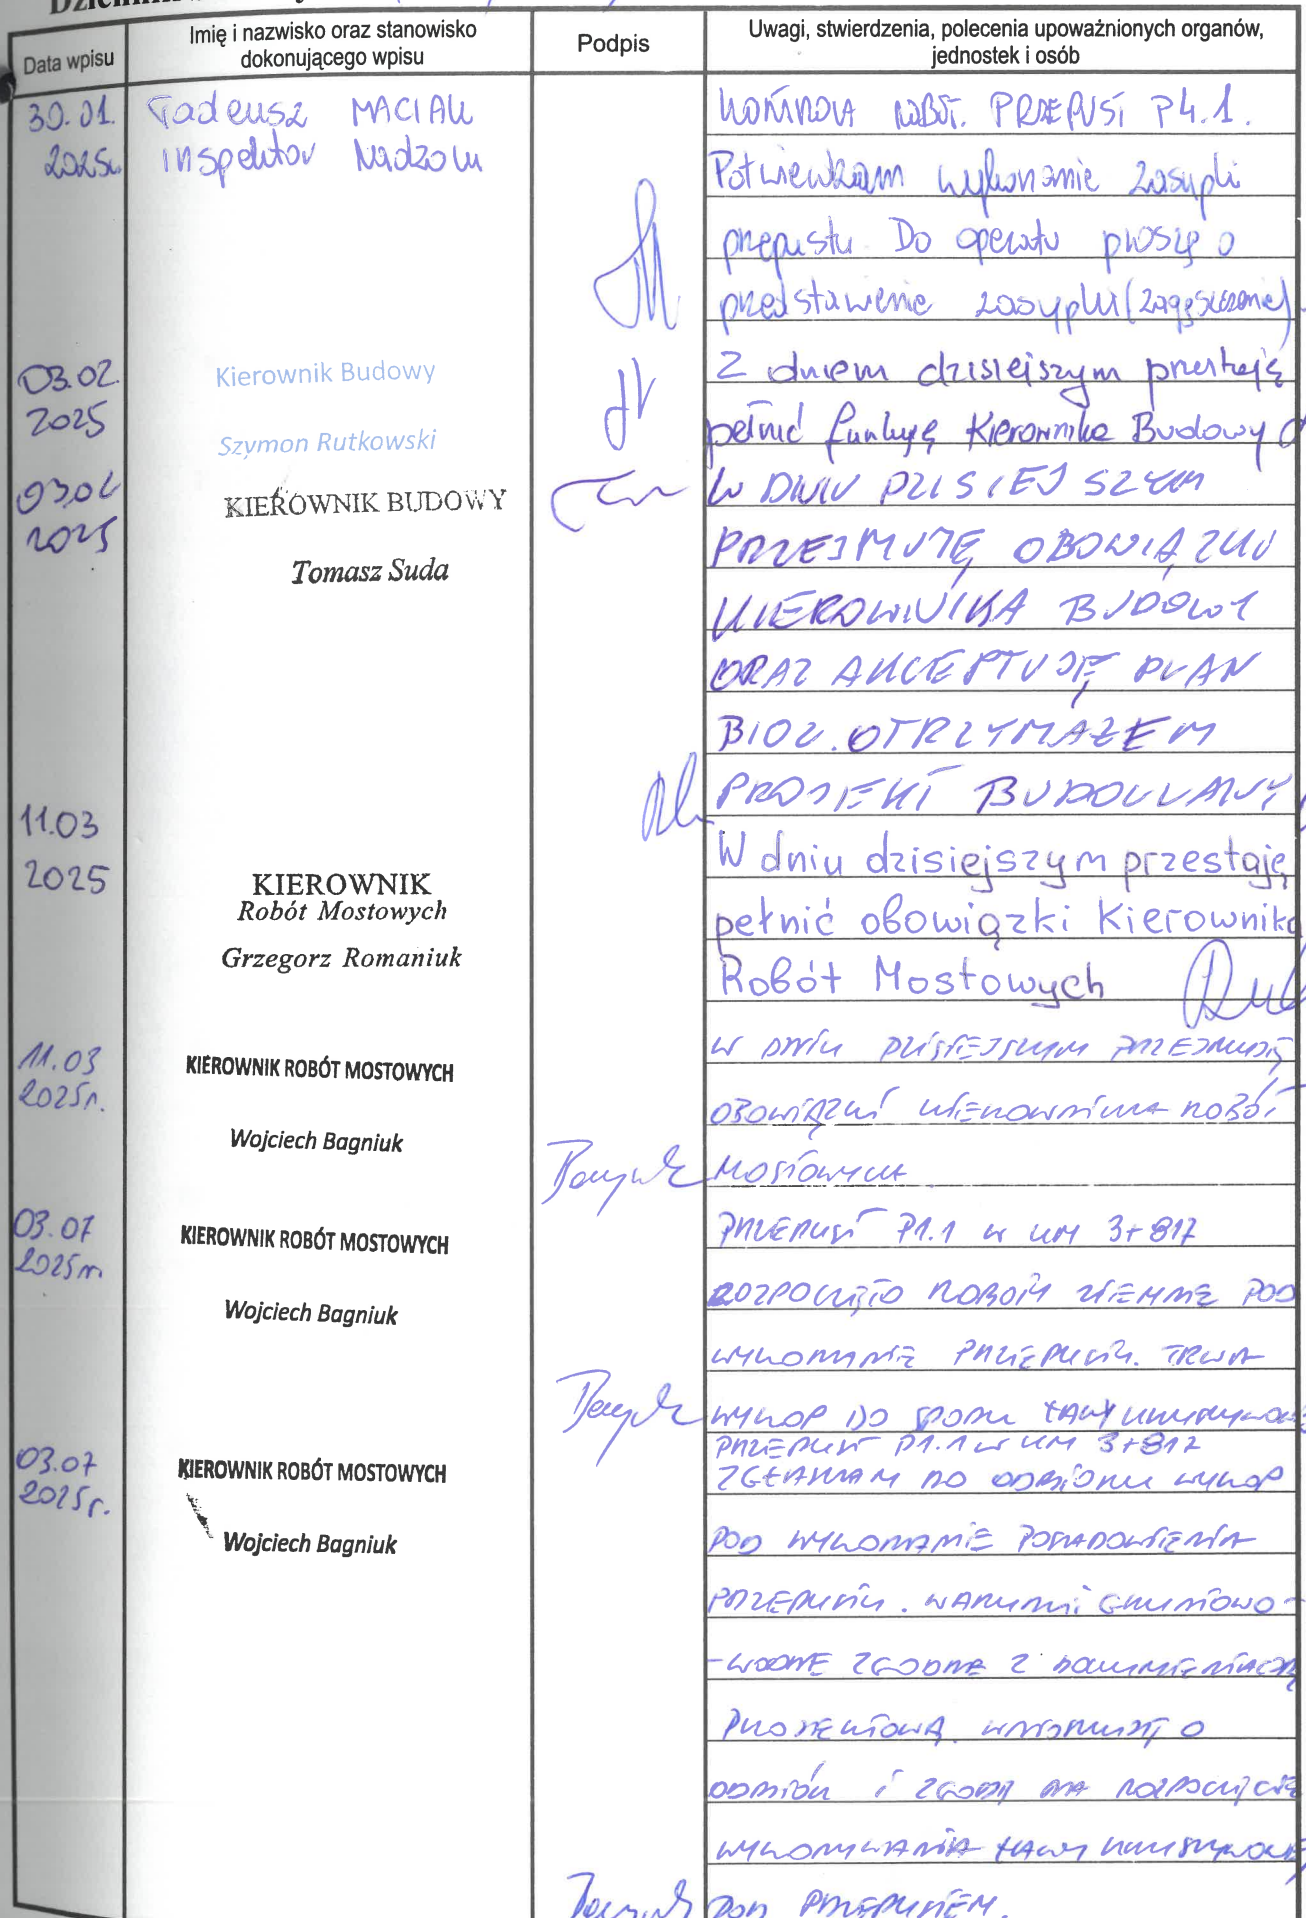 Data wpisu
Imię i nazwisko oraz stanowisko
dokonującego wpisu
Podpis
Uwagi, stwierdzenia, polecenia upoważnionych organów,
jednostek i osób
30.01.
2025r.
Tadeusz MACIAK
Inspektor Nadzoru
KONTROLA ROBÓT. PRZEPUST P4.1.
Potwierdzam wykonanie zasypki
przepustu Do operatu proszę o
przedstawienie zasypki (zagęszczenie)
03.02.
2025
Kierownik Budowy
Szymon Rutkowski
Z dniem dzisiejszym przestaję
pełnić funkcję Kierownika Budowy
03.02
2025
KIEROWNIK BUDOWY
Tomasz Suda
W DNIU DZISIEJSZYM
PRZEJMUJĘ OBOWIĄZKI
KIEROWNIKA BUDOWY
ORAZ AKCEPTUJĘ PLAN
BIOZ. OTRZYMAŁEM
PROJEKT BUDOWLANY
11.03
2025
KIEROWNIK
Robót Mostowych
Grzegorz Romaniuk
W dniu dzisiejszym przestaję
pełnić obowiązki Kierownika
Robót Mostowych
11.03
2025r.
KIEROWNIK ROBÓT MOSTOWYCH
Wojciech Bagniuk
W DNIU DZISIEJSZYM PRZEJMUJĘ
OBOWIĄZKI KIEROWNIKA ROBÓT
MOSTOWYCH
03.07
2025r.
KIEROWNIK ROBÓT MOSTOWYCH
Wojciech Bagniuk
PRZEPUST P1.1 W KM 3+817
ROZPOCZĘTO ROBOTY ZIEMNE POD
WYKONANIE PRZEPUSTU. TRWA
WYKOP DO SPODU ŁAWY KRUSZYWOWEJ
03.07
2025r.
KIEROWNIK ROBÓT MOSTOWYCH
Wojciech Bagniuk
PRZEPUST P1.1 W KM 3+817
ZGŁASZAM DO ODBIORU WYKOP
POD WYKONANIE POSADOWIENIA
PRZEPUSTU. WARUNKI GRUNTOWO-
-WODNE ZGODNE Z DOKUMENTACJĄ
PROJEKTOWĄ. WNIOSKUJĘ O
ODBIÓR I ZGODĘ NA ROZPOCZĘCIE
WYKONYWANIA ŁAWY KRUSZYWOWEJ
POD PRZEPUSTEM.